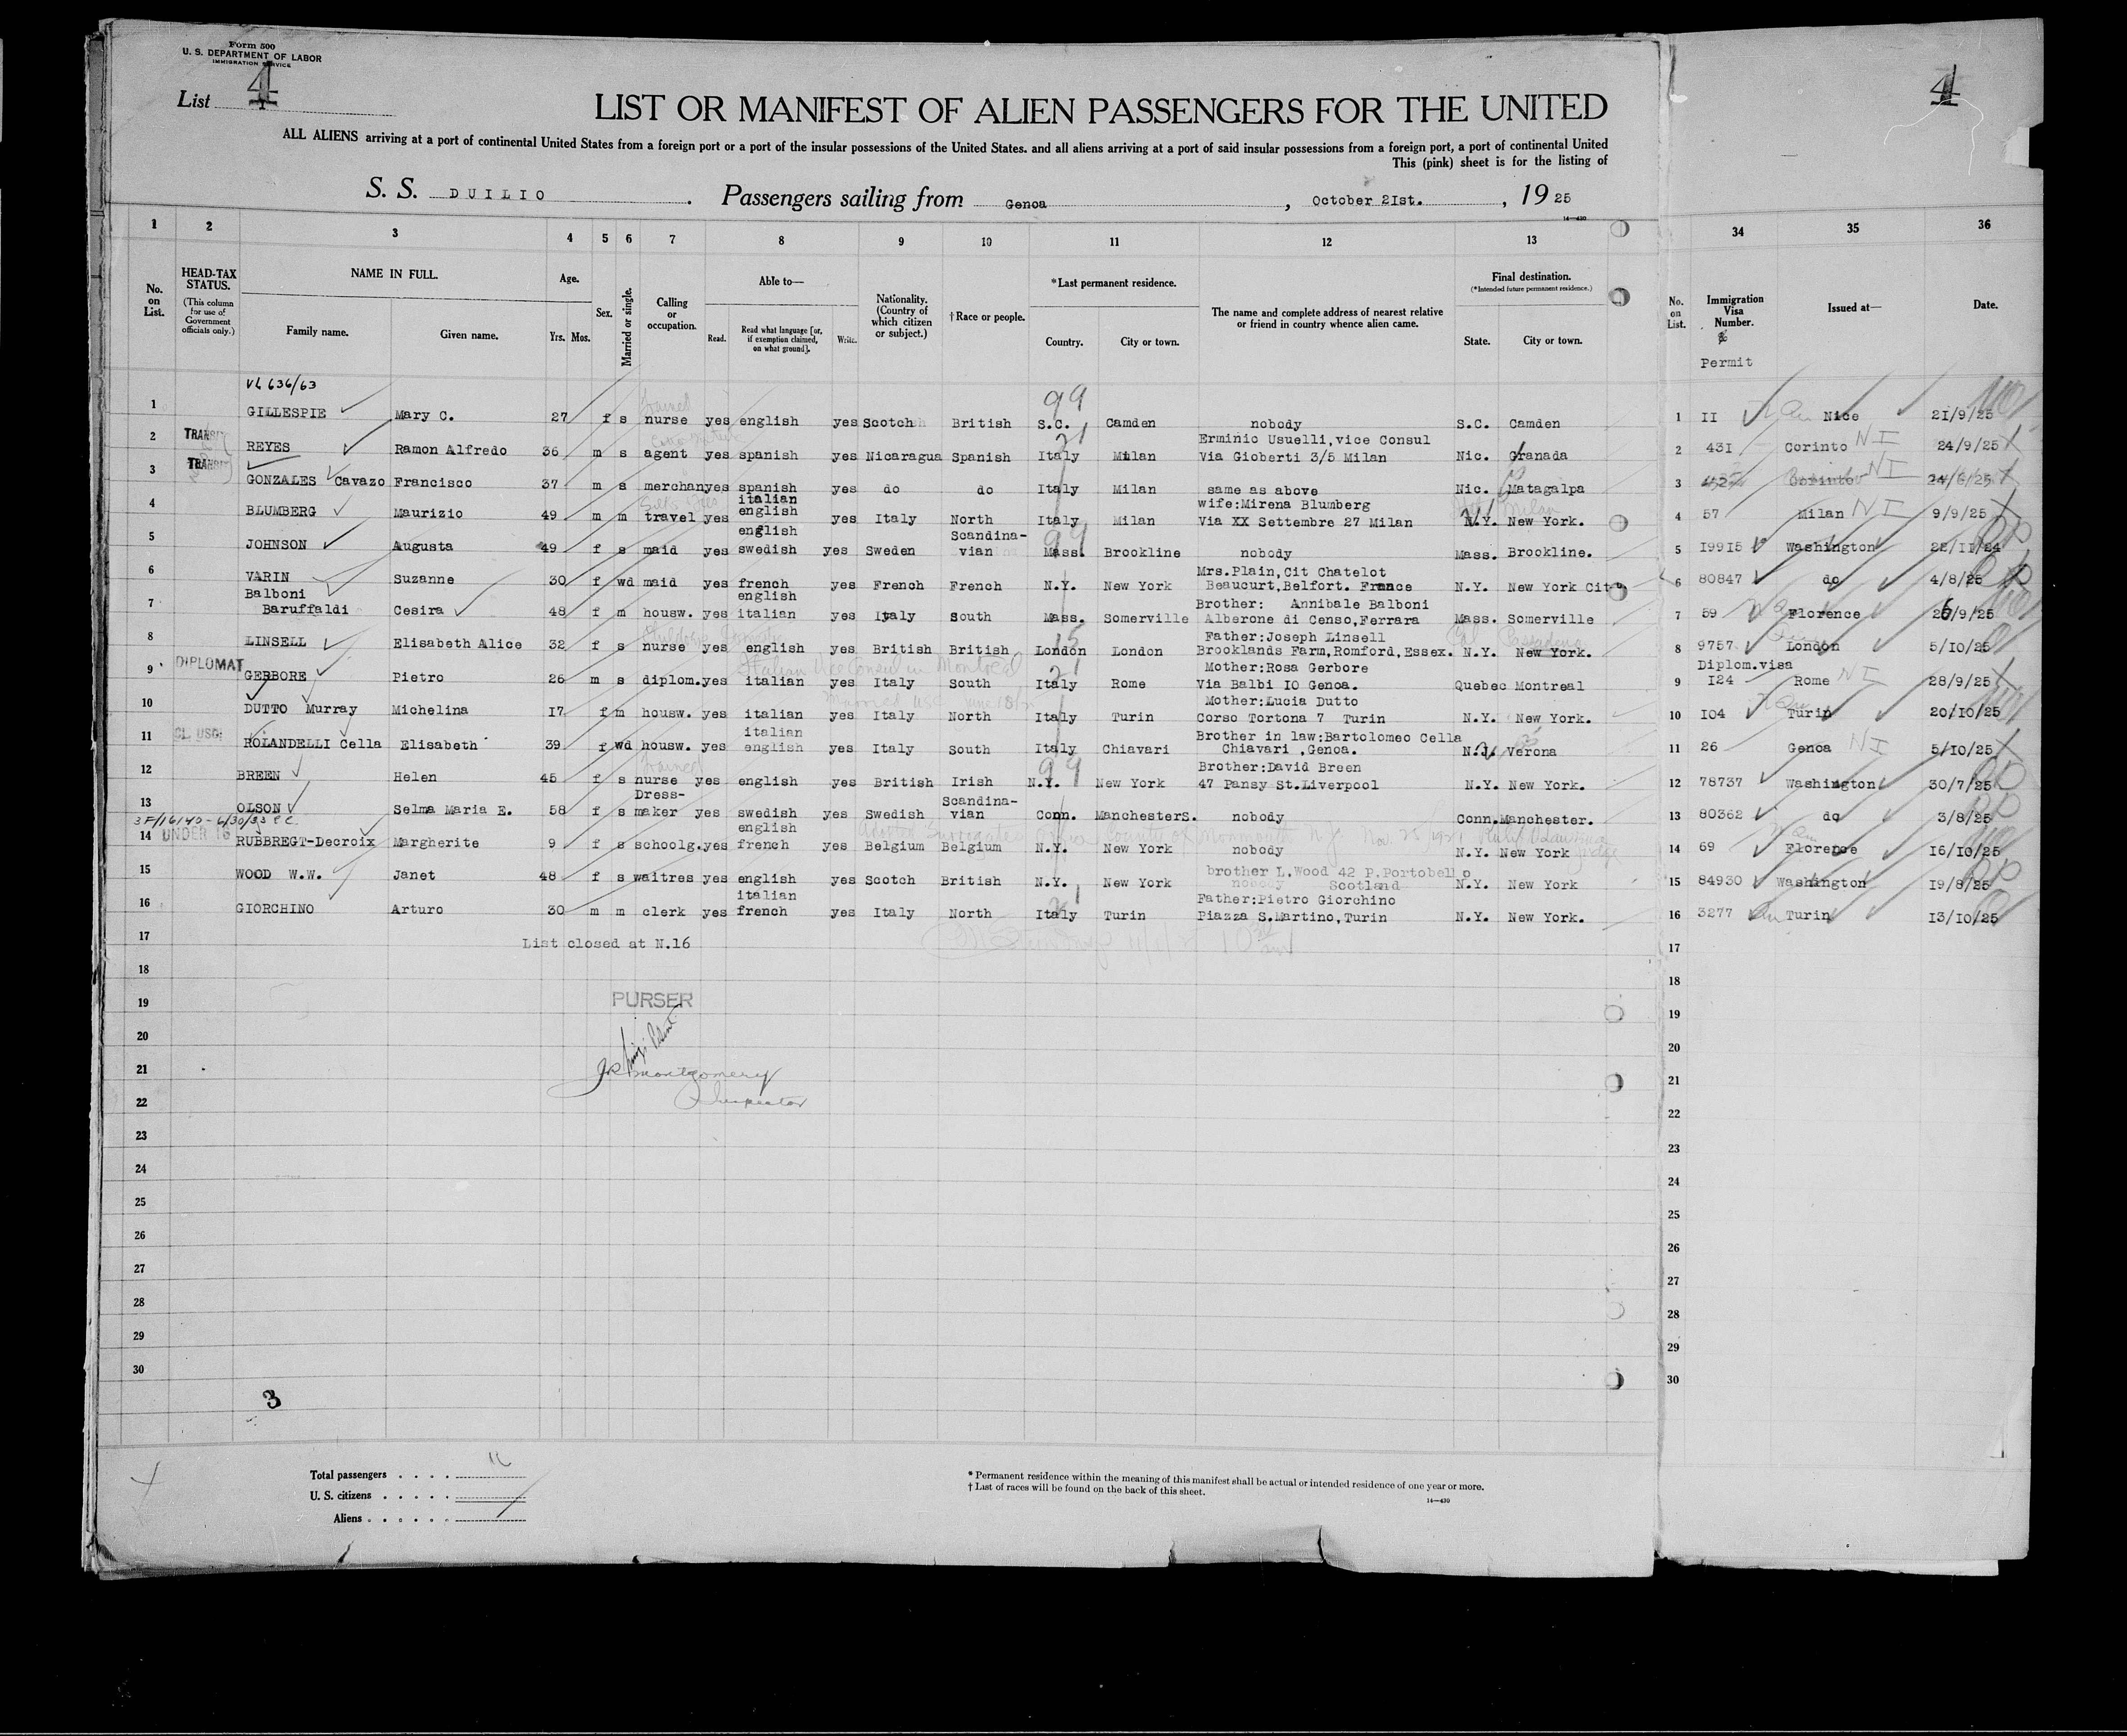 Form 500
U. S. DEPARTMENT OF LABOR
IMMIGRATION SERVICE
List 4
4
LIST OR MANIFEST OF ALIEN PASSENGERS FOR THE UNITED
ALL ALIENS arriving at a port of continental United States from a foreign port or a port of the insular possessions of the United States. and all aliens arriving at a port of said insular possessions from a foreign port, a port of continental United
This (pink) sheet is for the listing of
S. S. DUILIO . Passengers sailing from Genoa , October 2Ist. , 19 25
14—430
1 2 3 4 5 6 7 8 9 10 11 12 13 34 35 36
No. on List.
HEAD-TAX STATUS.
(This column for use of Government officials only.)
NAME IN FULL.
Family name. Given name.
Age.
Yrs. Mos.
Sex.
Married or single.
Calling or occupation.
Able to—
Read. Read what language [or, if exemption claimed, on what ground]. Write.
Nationality. (Country of which citizen or subject.)
†Race or people.
*Last permanent residence.
Country. City or town.
The name and complete address of nearest relative or friend in country whence alien came.
Final destination.
(*Intended future permanent residence.)
State. City or town.
No. on List.
Immigration Visa Number.
Permit
Issued at—
Date.
VL 636/63
trained
99
1 GILLESPIE Mary C. 27 f s nurse yes english yes Scotch British S.C. Camden nobody S.C. Camden 1 II Nice 2I/9/25
21
Erminio Usuelli,vice Consul
2 TRANSIT REYES Ramon Alfredo 36 m s agent yes spanish yes Nicaragua Spanish Italy Milan Via Gioberti 3/5 Milan Nic. Granada 2 43I Corinto NI 24/9/25
3 TRANSIT GONZALES Cavazo Francisco 37 m s merchan yes spanish yes do do Italy Milan same as above Nic. Matagalpa 3 Corinto NI
italian
wife:Mirena Blumberg
4 BLUMBERG Maurizio 49 m m travel yes english yes Italy North Italy Milan Via XX Settembre 27 Milan N.Y. New York. 4 57 Milan NI 9/9/25
english Scandina- 99
5 JOHNSON Augusta 49 f s maid yes swedish yes Sweden vian Mass. Brookline nobody Mass. Brookline. 5 I99I5 Washington 22/II/24
Mrs.Plain,Cit Chatelot
6 VARIN Suzanne 30 f wd maid yes french yes French French N.Y. New York Beaucurt,Belfort. France N.Y. New York City 6 80847 do 4/8/25
Balboni english Brother: Annibale Balboni
7 Baruffaldi Cesira 48 f m housw. yes italian yes Italy South Mass. Somerville Alberone di Censo,Ferrara Mass. Somerville 7 59 Florence 26/9/25
15 Father:Joseph Linsell Cal Pasadena
8 LINSELL Elisabeth Alice 32 f s nurse yes english yes British British London London Brooklands Farm,Romford,Essex. N.Y. New York. 8 9757 London 5/10/25
Italian Vice Consul in Montreal 21 Mother:Rosa Gerbore Diplom.visa
9 DIPLOMAT GERBORE Pietro 26 m s diplom. yes italian yes Italy South Italy Rome Via Balbi IO Genoa. Quebec Montreal 9 I24 Rome NI 28/9/25
Mother:Lucia Dutto
10 DUTTO Murray Michelina I7 f m housw. yes italian yes Italy North Italy Turin Corso Tortona 7 Turin N.Y. New York. 10 I04 Turin 20/I0/25
italian Brother in law:Bartolomeo Cella
11 ROLANDELLI Cella Elisabeth 39 f wd housw. yes english yes Italy South Italy Chiavari Chiavari ,Genoa. N.J. Verona 11 26 Genoa NI 5/I0/25
trained 99 Brother:David Breen
12 BREEN Helen 45 f s nurse yes english yes British Irish N.Y. New York 47 Pansy St.Liverpool N.Y. New York. 12 78737 Washington 30/7/25
Dress- Scandina-
13 OLSON Selma Maria E. 58 f s maker yes swedish yes Swedish vian Conn. ManchesterS. nobody Conn.Manchester. 13 80362 do 3/8/25
3F/16140-6/30/33 P.C. english
14 UNDER 16 RUBBREGT-Decroix Margherite 9 f s schoolg. yes french yes Belgium Belgium N.Y. New York nobody N.Y. New York 14 69 Florence I6/I0/25
brother L.Wood 42 P.Portobello
15 WOOD W.W. Janet 48 f s waitres yes english yes Scotch British N.Y. New York nobody Scotland N.Y. New York 15 84930 Washington I9/8/25
italian 21 Father:Pietro Giorchino
16 GIORCHINO Arturo 30 m m clerk yes french yes Italy North Italy Turin Piazza S.Martino,Turin N.Y. New York. 16 3277 Turin I3/I0/25
17 List closed at N.16 17
18 18
19 PURSER 19
20 20
21 JR Montgomery 21
22 Inspector 22
23 23
24 24
25 25
26 26
27 27
28 28
29 29
30 30
3
Total passengers 16
U. S. citizens
Aliens
* Permanent residence within the meaning of this manifest shall be actual or intended residence of one year or more.
† List of races will be found on the back of this sheet.
14—430